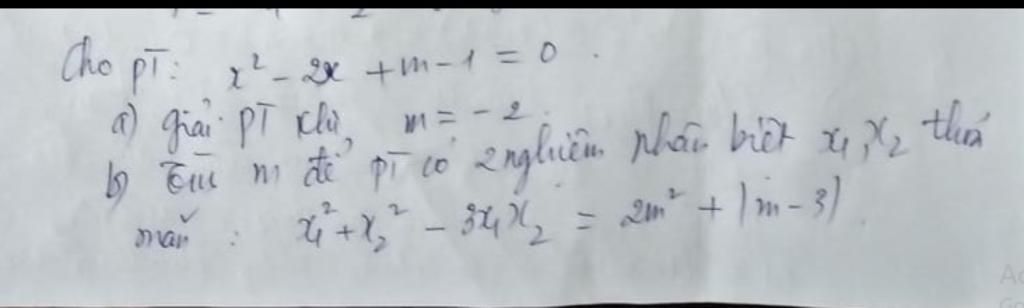 Cho pT: x² - 2x + m - 1 = 0.
a) giải pT khi m = -2.
b) Tìm m để pT có 2 nghiệm phân biệt x₁, x₂ thoả
mãn : x₁² + x₂² - 3x₁x₂ = 2m² + |m - 3|